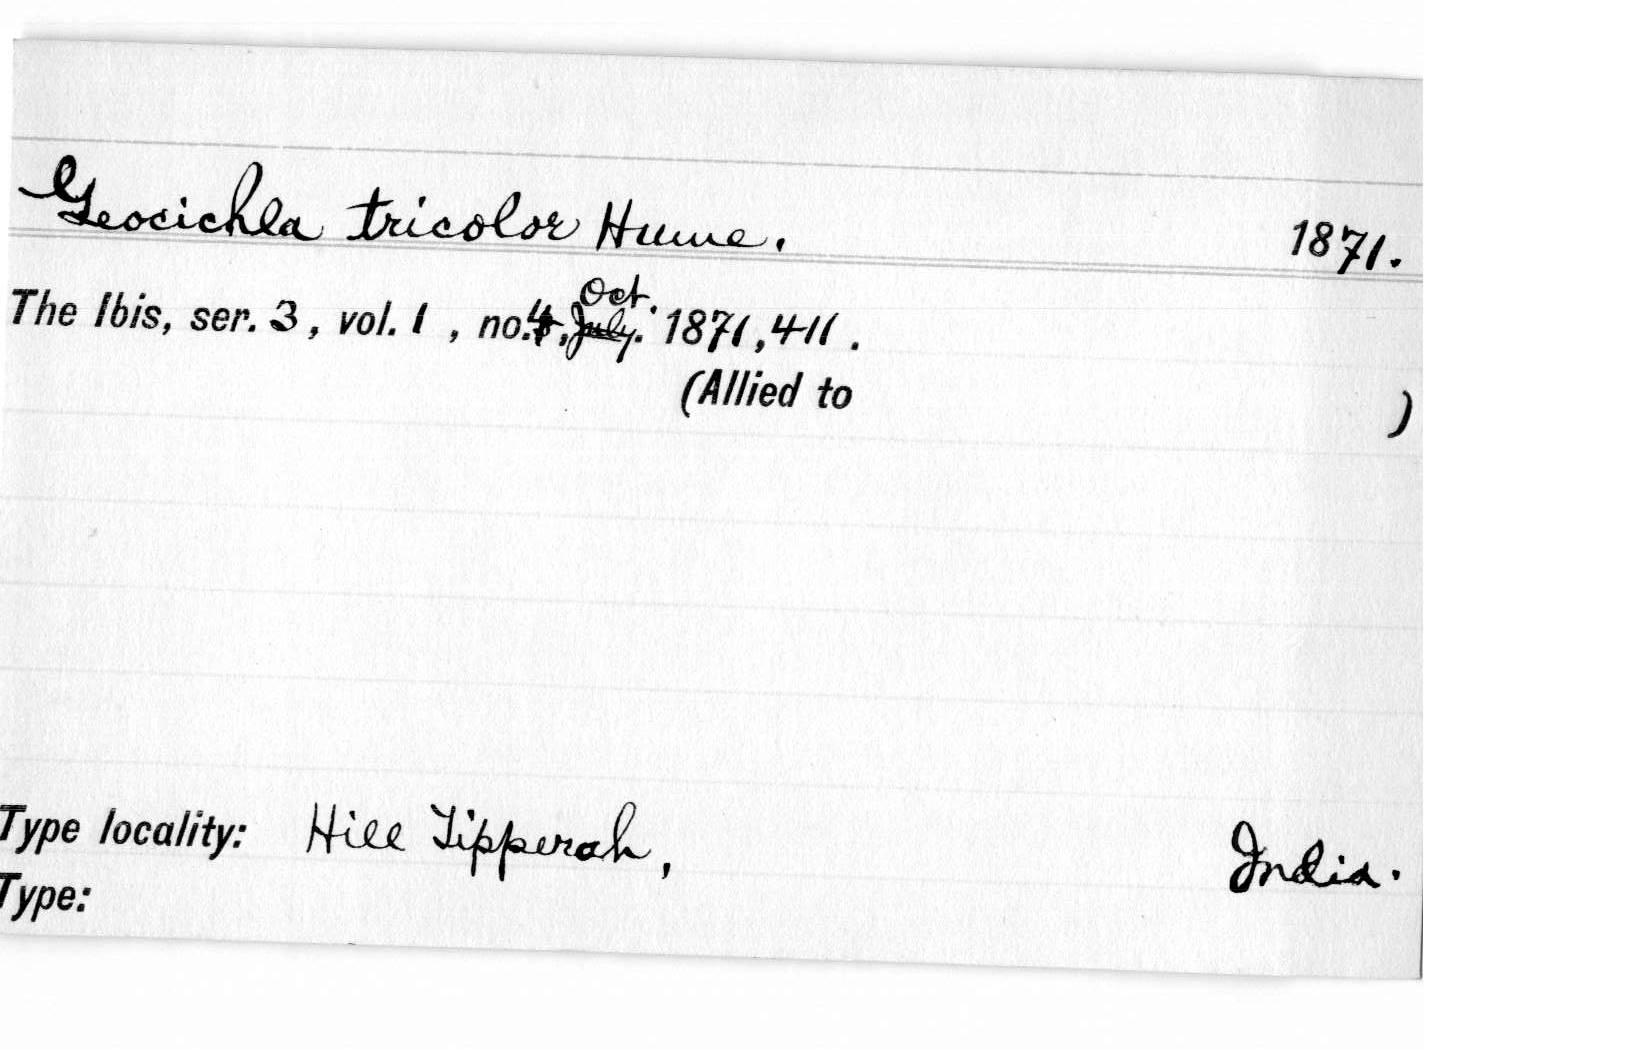 Geocichla tricolor Hume. 1871.
Oct.
The Ibis, ser. 3, vol. 1, no. 4, July. 1871, 411.
(Allied to )
Type locality: Hill Tipperah, India.
Type: